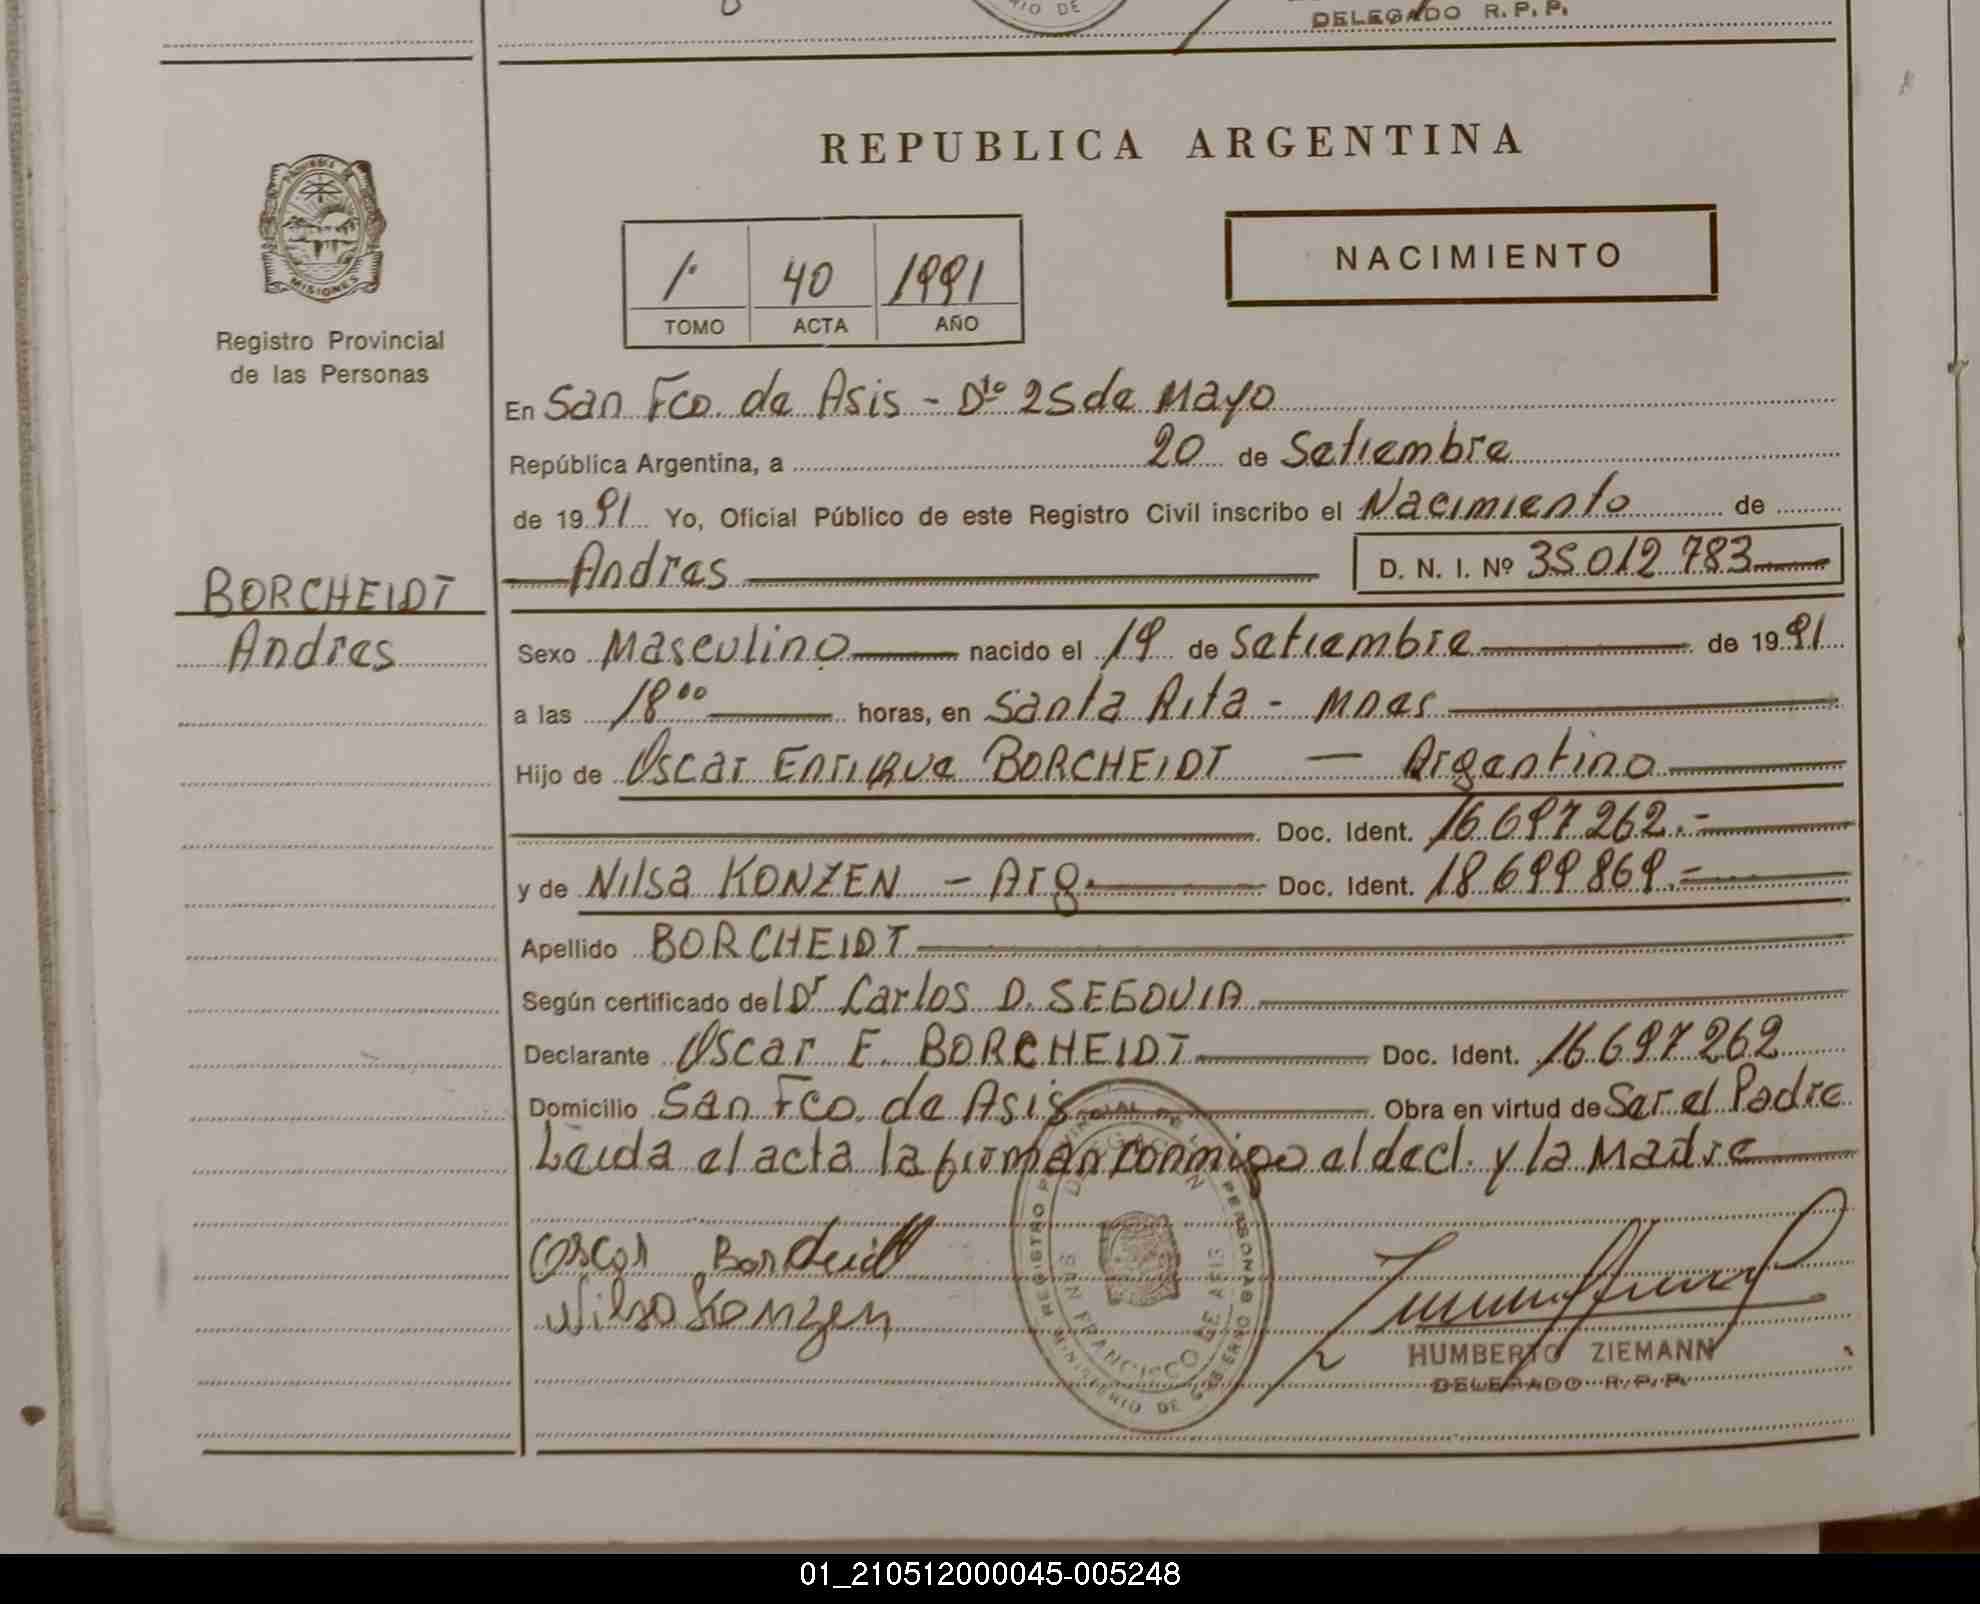 DELEGADO R.P.P.
REPUBLICA ARGENTINA
NACIMIENTO
1º 40 1991
TOMO ACTA AÑO
MISIONES
Registro Provincial
de las Personas
BORCHEIDT
Andres
En San Fco. de Asis - Dto 25 de Mayo
República Argentina, a 20 de Setiembre
de 1991 Yo, Oficial Público de este Registro Civil inscribo el Nacimiento de
Andres D. N. I. Nº 35.012.783
Sexo Masculino nacido el 19 de Setiembre de 1991
a las 18 00 horas, en Santa Rita - Mnes
Hijo de Oscar Enrique BORCHEIDT — Argentino
Doc. Ident. 16.697.262.-
y de Nilsa KONZEN - Arg. Doc. Ident. 18.699.869.-
Apellido BORCHEIDT
Según certificado del Dr Carlos D. SEGOVIA
Declarante Oscar E. BORCHEIDT Doc. Ident. 16.697.262
Domicilio San Fco. de Asis Obra en virtud de Ser el Padre
Leida el acta la firman conmigo el decl. y la Madre
Oscar Borcheidt
Nilsa Konzen
REGISTRO PROVINCIAL DE LAS PERSONAS
MINISTERIO DE GOBIERNO
DELEGACION
SAN FRANCISCO DE ASIS
HUMBERTO ZIEMANN
DELEGADO R.P.P.
01_210512000045-005248